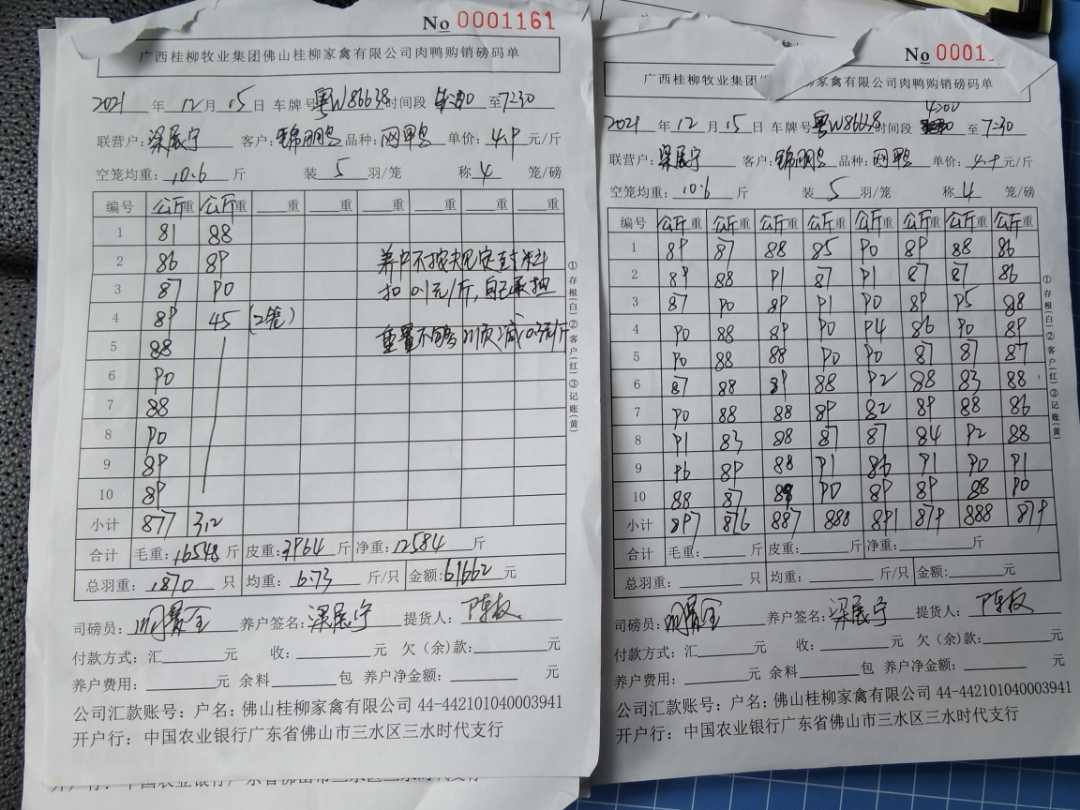 No 0001161
广西桂柳牧业集团佛山桂柳家禽有限公司肉鸭购销磅码单
2021 年 12 月 15 日 车牌号 粤W86638 时间段 至 7:30
联营户: 梁展宁 客户: 锦鹏 品种: 网鸭 单价: 4.9 元/斤
空笼均重: 10.6 斤 装 5 羽/笼 称 4 笼/磅
编号 公斤重 公斤重 重 重 重 重 重 重
1 81 88
2 86 89
3 87 90
4 89 45 (2笼)
5 88
6 90
7 88
8 90
9 89
10 89
小计 877 312
扣0.1元/斤,自己承担
合计 毛重: 16548 斤 皮重: 3964 斤 净重: 12584 斤
总羽重: 1870 只 均重: 6.73 斤/只 金额: 61662 元
司磅员: 养户签名: 梁展宁 提货人: 陈权
付款方式: 汇 元 收: 元 欠(余)款: 元
养户费用: 元 余料 包 养户净金额: 元
公司汇款账号:户名:佛山桂柳家禽有限公司 44-442101040003941
开户行:中国农业银行广东省佛山市三水区三水时代支行
①存根(白)②客户(红)③记账(黄)
No 0001
广西桂柳牧业集团 家禽有限公司肉鸭购销磅码单
2021 年 12 月 15 日 车牌号 粤W86638 时间段 4:00 至 7:30
联营户: 梁展宁 客户: 锦鹏 品种: 网鸭 单价: 4.9 元/斤
空笼均重: 10.6 斤 装 5 羽/笼 称 4 笼/磅
编号 公斤重 公斤重 公斤重 公斤重 公斤重 公斤重 公斤重 公斤重
1 89 87 88 85 90 89 88 86
2 89 88 91 87 91 87 87 86
3 87 90 89 91 90 89 95 88
4 90 88 89 90 94 86 90 89
5 90 88 88 90 90 87 87 87
6 87 88 89 88 92 88 83 88
7 90 88 88 89 82 89 88 86
8 91 83 88 87 87 84 92 88
9 96 89 88 91 86 91 90 91
10 88 87 89 90 89 89 88 90
小计 897 876 887 888 891 879 888 879
合计 毛重: 斤 皮重: 斤 净重: 斤
总羽重: 只 均重: 斤/只 金额: 元
司磅员: 养户签名: 梁展宁 提货人: 陈权
付款方式: 汇 元 收: 元 欠(余)款: 元
养户费用: 元 余料 包 养户净金额: 元
公司汇款账号:户名:佛山桂柳家禽有限公司 44-442101040003941
开户行:中国农业银行广东省佛山市三水区三水时代支行
①存根(白)②客户(红)③记账(黄)